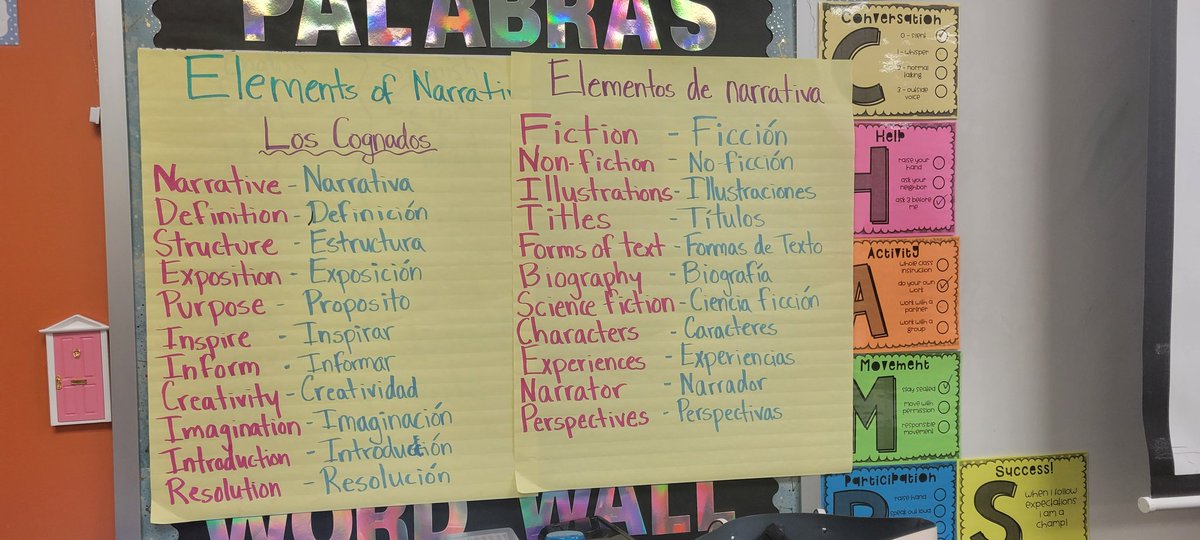 PALABRAS
Elements of Narrati
Los Cognados
Narrative - Narrativa
Definition - Definición
Structure - Estructura
Exposition - Exposición
Purpose - Proposito
Inspire - Inspirar
Inform - Informar
Creativity - Creatividad
Imagination - Imaginación
Introduction - Introducción
Resolution - Resolución
Elementos de narrativa
Fiction - Ficción
Non-fiction - No ficción
Illustrations - Illustraciones
Titles - Títulos
Forms of text - Formas de Texto
Biography - Biografía
Science fiction - Ciencia ficción
Characters - Caracteres
Experiences - Experiencias
Narrator - Narrador
Perspectives - Perspectivas
WORD WALL
Conversation
C
0 - silent
1 - whisper
2 - normal talking
3 - outside voice
Help
H
raise your hand
ask your neighbor
ask 3 before me
Activity
A
whole class instruction
do your own work
work with a partner
work with a group
Movement
M
stay seated
move with permission
responsible movement
Participation
P
raise hand
speak out loud
Success!
S
when I follow expectations I am a champ!